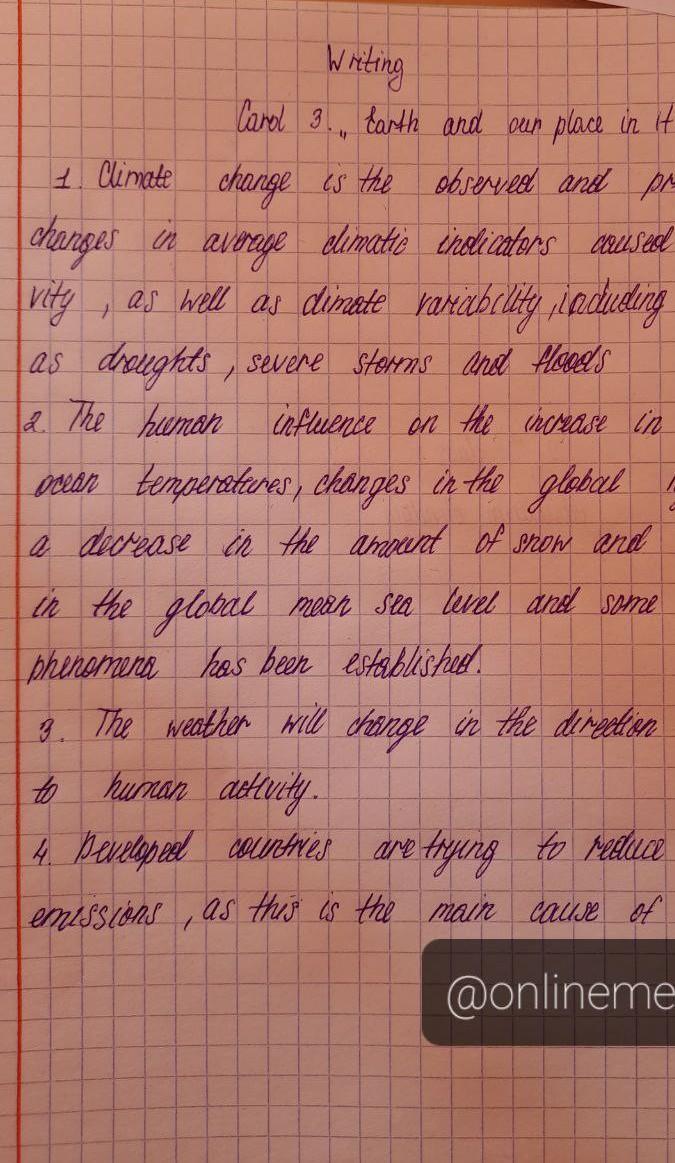 Writing
Card 3. „ Earth and our place in it
1. Climate change is the observed and
changes in average climatic indicators caused
vity, as well as climate variability, including
as droughts, severe storms and floods
2. The human influence on the increase in
ocean temperatures, changes in the global
a decrease in the amount of snow and
in the global mean sea level and some
phenomena has been established.
3. The weather will change in the direction
to human activity.
4. Developed countries are trying to reduce
emissions, as this is the main cause of
@onlineme